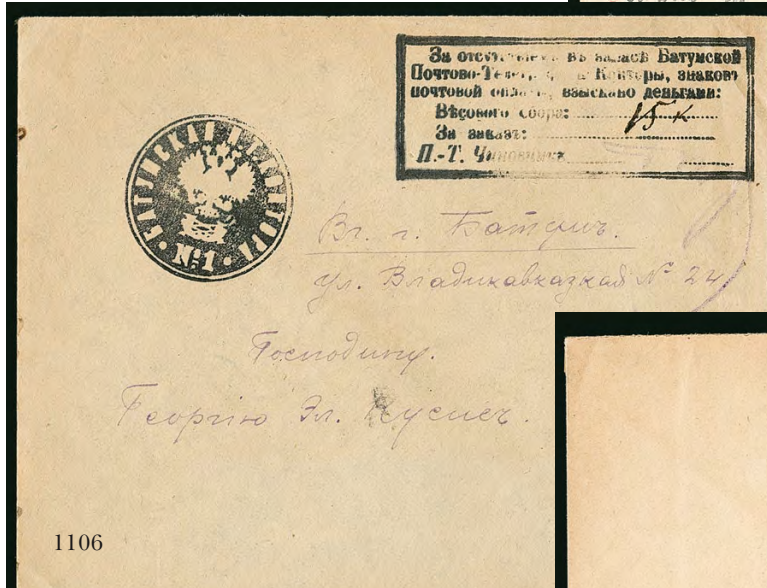 За въ запасѣ Батумской
Почтово- Конторы, знаковъ
почтовой взыскано деньгами:
Вѣсового сбора: 15 к
За заказъ:
П.-Т. Чиновникъ
№1
Вг. г. Батумъ.
ул. Владикавказкая № 24
Господину.
Георгію Эл.
1106